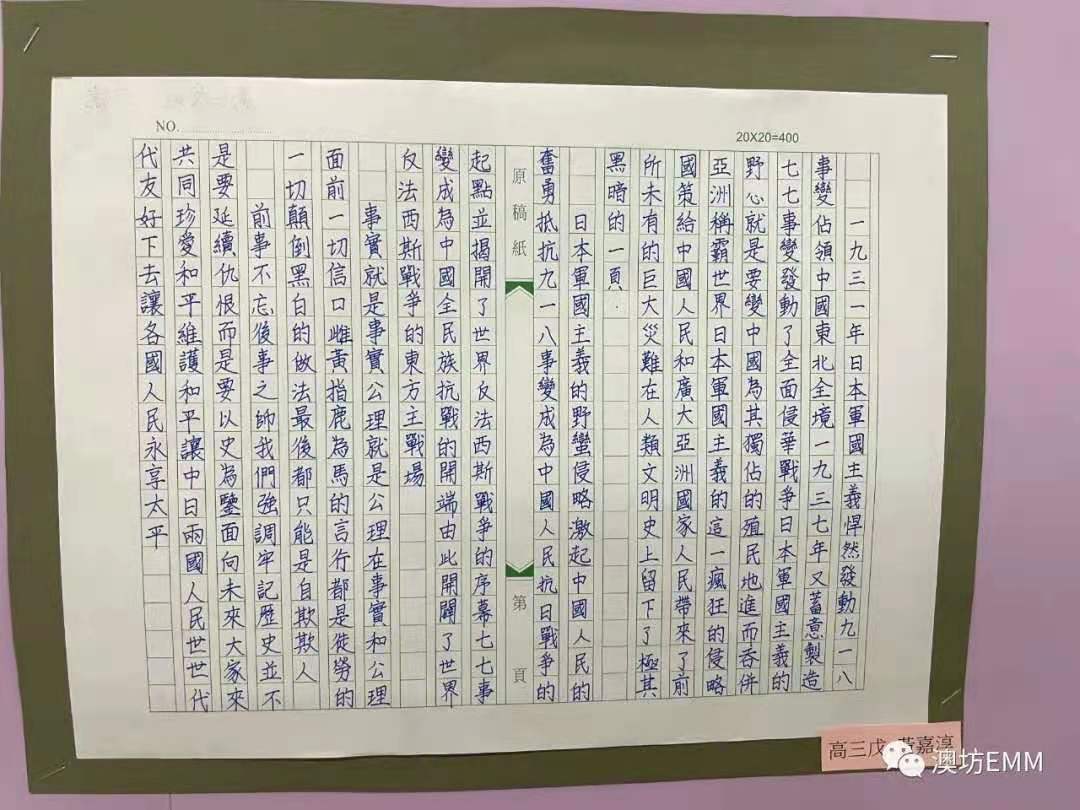 NO.
20X20=400
一九三一年日本軍國主義悍然發動九一八
事變佔領中國東北全境一九三七年又蓄意製造
七七事變發動了全面侵華戰爭日本軍國主義的
野心就是要變中國為其獨佔的殖民地進而吞併
亞洲稱霸世界日本軍國主義的這一瘋狂的侵略
國策給中國人民和廣大亞洲國家人民帶來了前
所未有的巨大災難在人類文明史上留下了極其
黑暗的一頁.
日本軍國主義的野蠻侵略激起中國人民的
奮勇抵抗九一八事變成為中國人民抗日戰爭的
原稿紙
第 頁
起點並揭開了世界反法西斯戰爭的序幕七七事
變成為中國全民族抗戰的開端由此開闢了世界
反法西斯戰爭的東方主戰場
事實就是事實公理就是公理在事實和公理
面前一切信口雌黃指鹿為馬的言行都是徒勞的
一切顛倒黑白的做法最後都只能是自欺欺人
前事不忘後事之師我們強調牢記歷史並不
是要延續仇恨而是要以史為鑒面向未來大家來
共同珍愛和平維護和平讓中日兩國人民世世代
代友好下去讓各國人民永享太平
高三戊 嘉淳
澳坊EMM